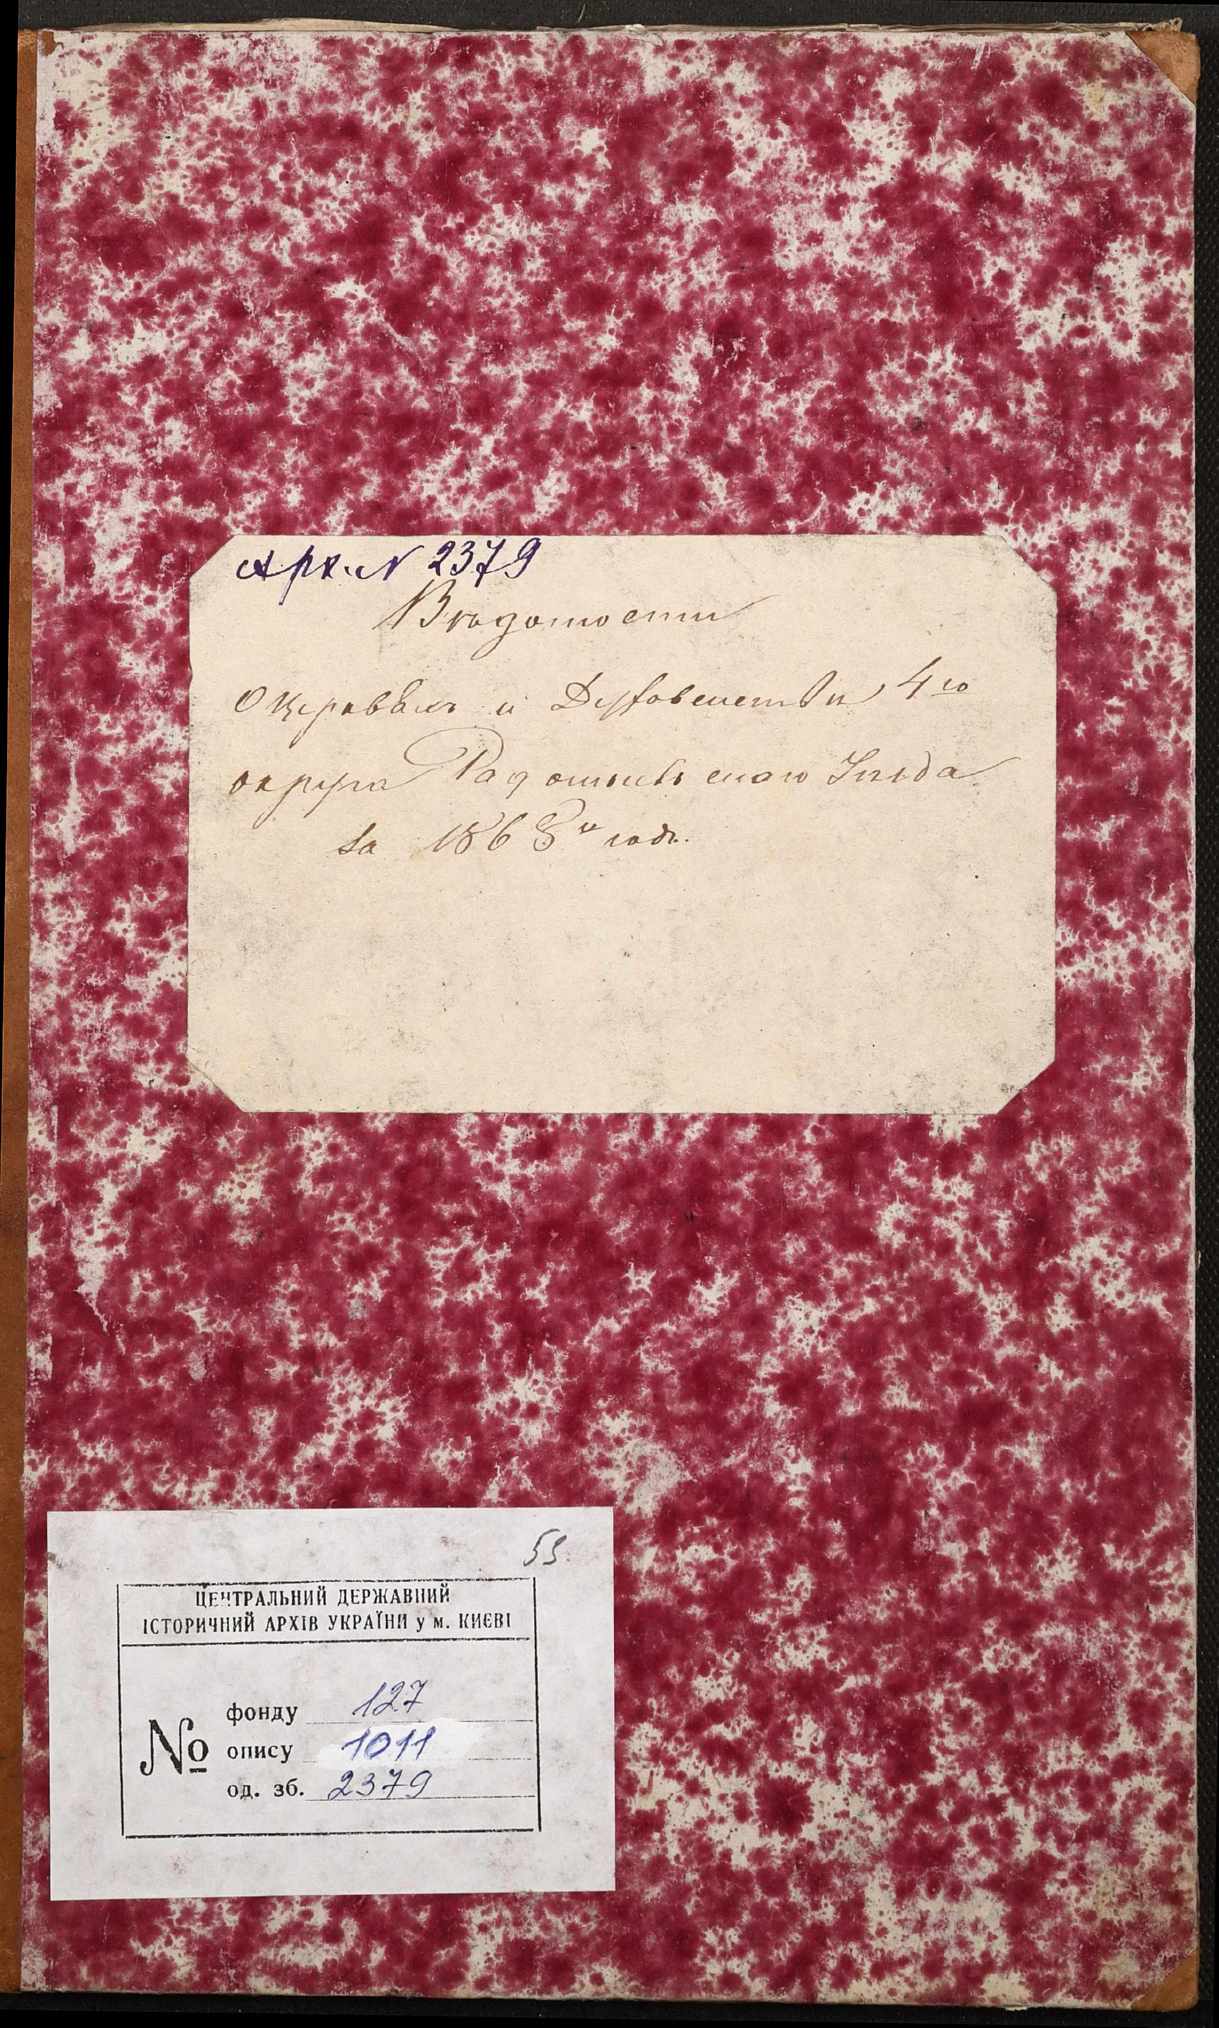 Арх. N 2379
Вѣдомости
О Церквахъ и Духовенствѣ 4го
округа Радомысльского Уѣзда
за 1868й годъ.
53
ЦЕНТРАЛЬНИЙ ДЕРЖАВНИЙ
ІСТОРИЧНИЙ АРХІВ УКРАЇНИ у м. КИЄВІ
№
фонду 127
опису 1011
од. зб. 2379